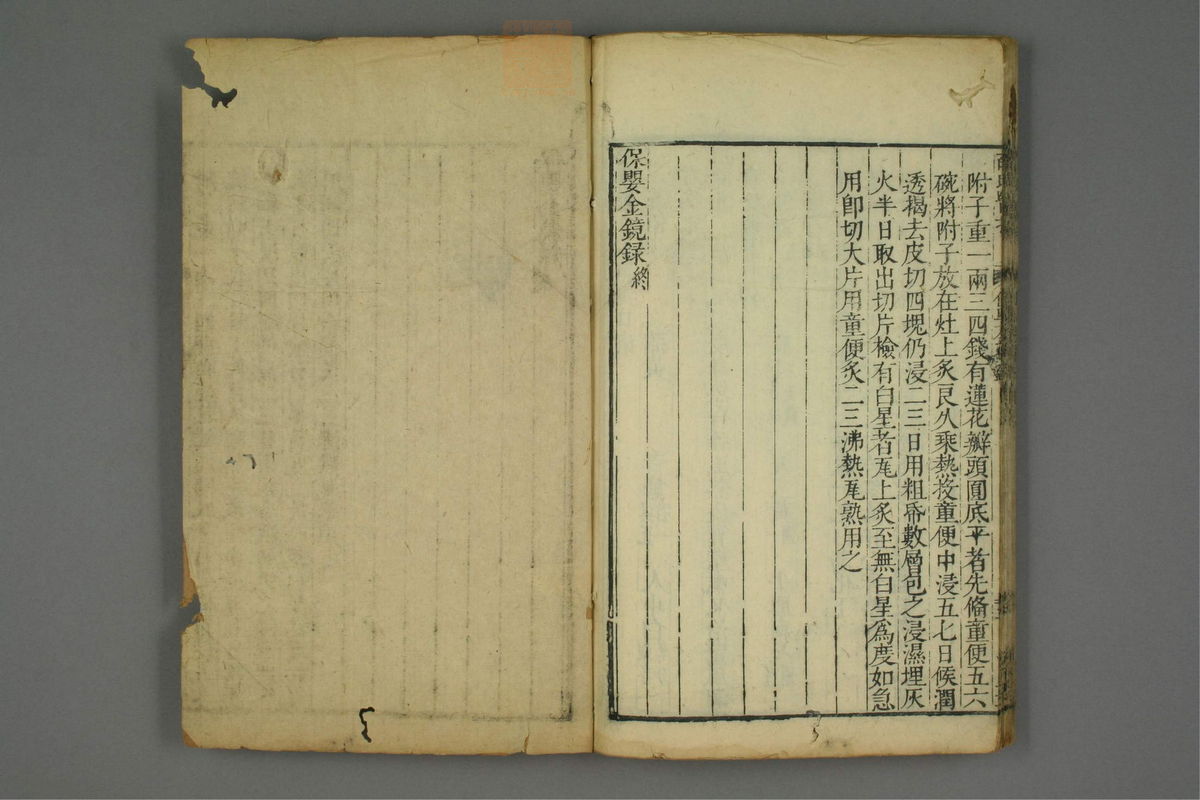 附子重一兩三四錢有蓮花瓣頭圓底平者先備童便五六
碗將附子放在灶上炙良久乘熱投童便中浸五七日候潤
透揭去皮切四塊仍浸二三日用粗帋數層包之浸濕埋灰
火半日取出切片檢有白星者瓦上炙至無白星爲度如急
用卽切大片用童便炙二三沸熱瓦熟用之
保嬰金鏡録終